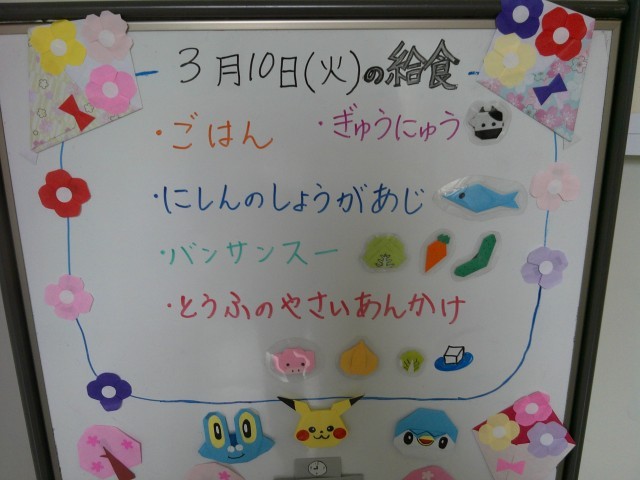 3月10日(火)の給食
・ごはん ・ぎゅうにゅう
・にしんのしょうがあじ
・バンサンスー
・とうふのやさいあんかけ